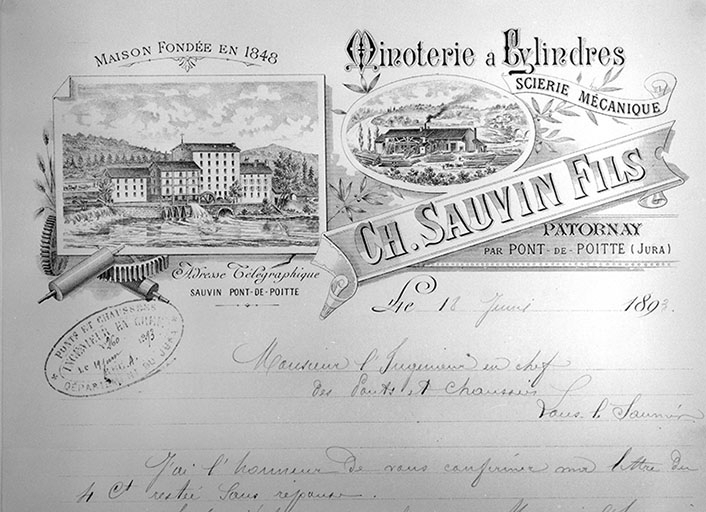 MAISON FONDÉE EN 1848
Minoterie a Cylindres
SCIERIE MÉCANIQUE
CH. SAUVIN FILS
PATORNAY
PAR PONT-DE-POITTE (JURA)
Adresse Télégraphique
SAUVIN PONT-DE-POITTE
Le 18 Juin 1893.
PONTS ET CHAUSSÉES
INGÉNIEUR EN CHEF
1893
DÉPARTEMENT DU JURA
Monsieur l'Ingénieur en chef
des Ponts et Chaussées
Lons le Saunier
J'ai l'honneur de vous confirmer ma lettre du
4 Ct restée sans réponse.